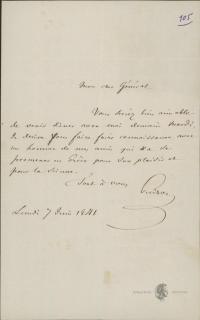 105
Mon cher Général
Vous seriez bien aimable
de venir dîner avec moi demain mardi.
Je désire vous faire faire connaissance avec
un homme de mes amis qui va se
promener en Grèce pour son plaisir et
pour la Science.
Tout à vous
Lundi 7 Juin 1841